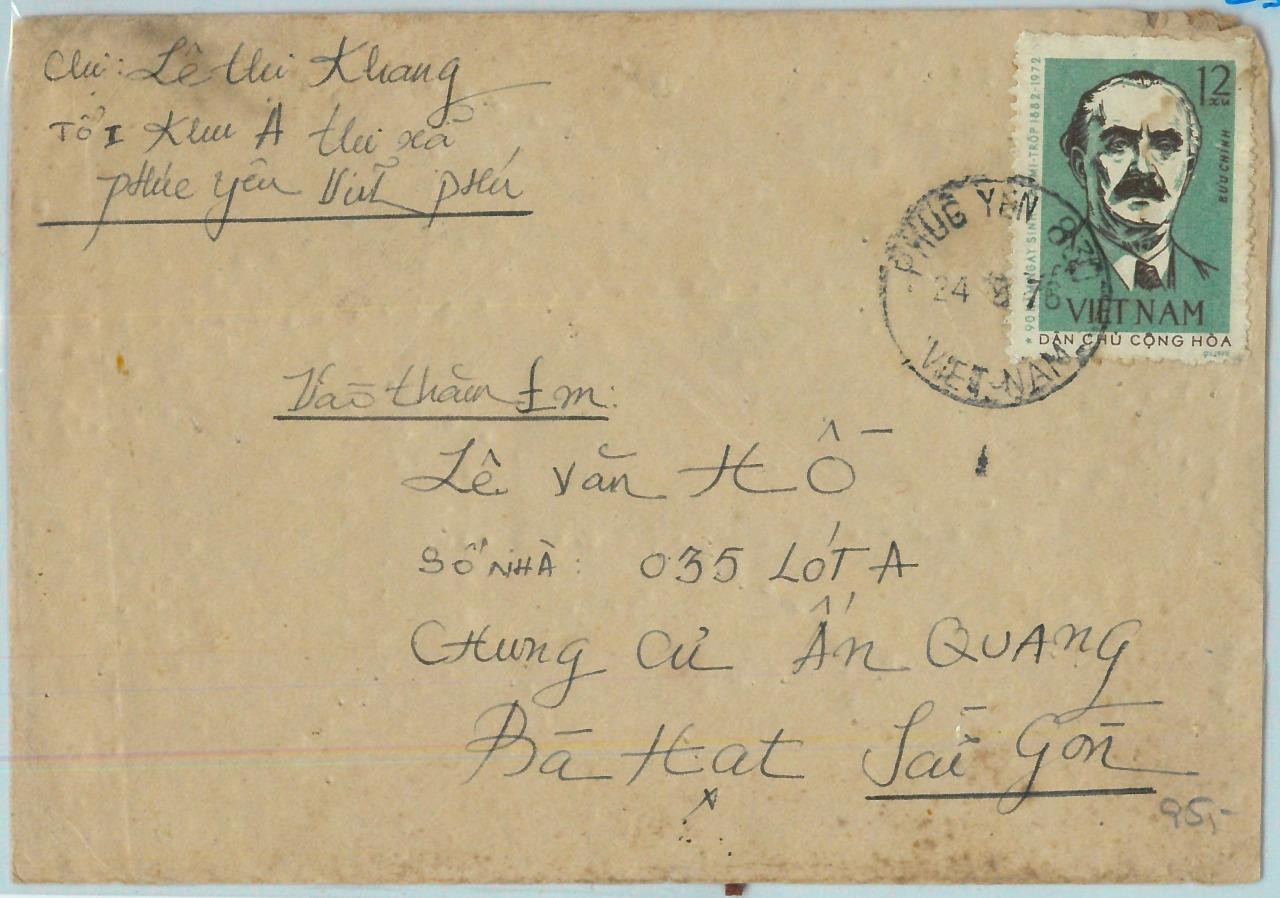 Chị: Lê thị Khang
TỔ I Khu A thị xã
Phúc yên Vĩnh Phú
12
xu
BƯU CHÍNH
VIỆT NAM
DÂN CHỦ CỘNG HÒA
PHUC YEN
24 76
VIET-NAM
Vào thăm Em:
Lê Văn HỒ
SỐ NHÀ: 035 LÓT A
CHUNG CƯ ẤN QUANG
Bà Hạt Sài Gòn
95,-